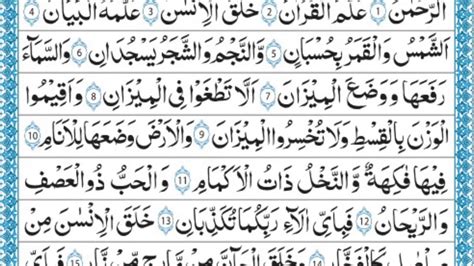 اَلرَّحْمٰنُ ۙ 1 عَلَّمَ الْقُرْاٰنَ ؕ 2 خَلَقَ الْاِنْسٰنَ ۙ 3 عَلَّمَهُ الْبَيَانَ 4
اَلشَّمْسُ وَالْقَمَرُ بِحُسْبَانٍ 5 وَّالنَّجْمُ وَالشَّجَرُ يَسْجُدَانِ 6 وَالسَّمَآءَ
رَفَعَهَا وَوَضَعَ الْمِيْزَانَ 7 اَلَّا تَطْغَوْا فِى الْمِيْزَانِ 8 وَاَقِيْمُوا
الْوَزْنَ بِالْقِسْطِ وَلَا تُخْسِرُوا الْمِيْزَانَ 9 وَالْاَرْضَ وَضَعَهَا لِلْاَنَامِ 10
فِيْهَا فَاكِهَةٌ وَّالنَّخْلُ ذَاتُ الْاَكْمَامِ 11 وَالْحَبُّ ذُو الْعَصْفِ
وَالرَّيْحَانُ 12 فَبِاَىِّ اٰلَآءِ رَبِّكُمَا تُكَذِّبَانِ 13 خَلَقَ الْاِنْسٰنَ مِنْ
صَلْصَالٍ كَالْفَخَّارِ 14 وَخَلَقَ الْجَآنَّ مِنْ مَّارِجٍ مِّنْ نَّارٍ 15 فَبِاَىِّ